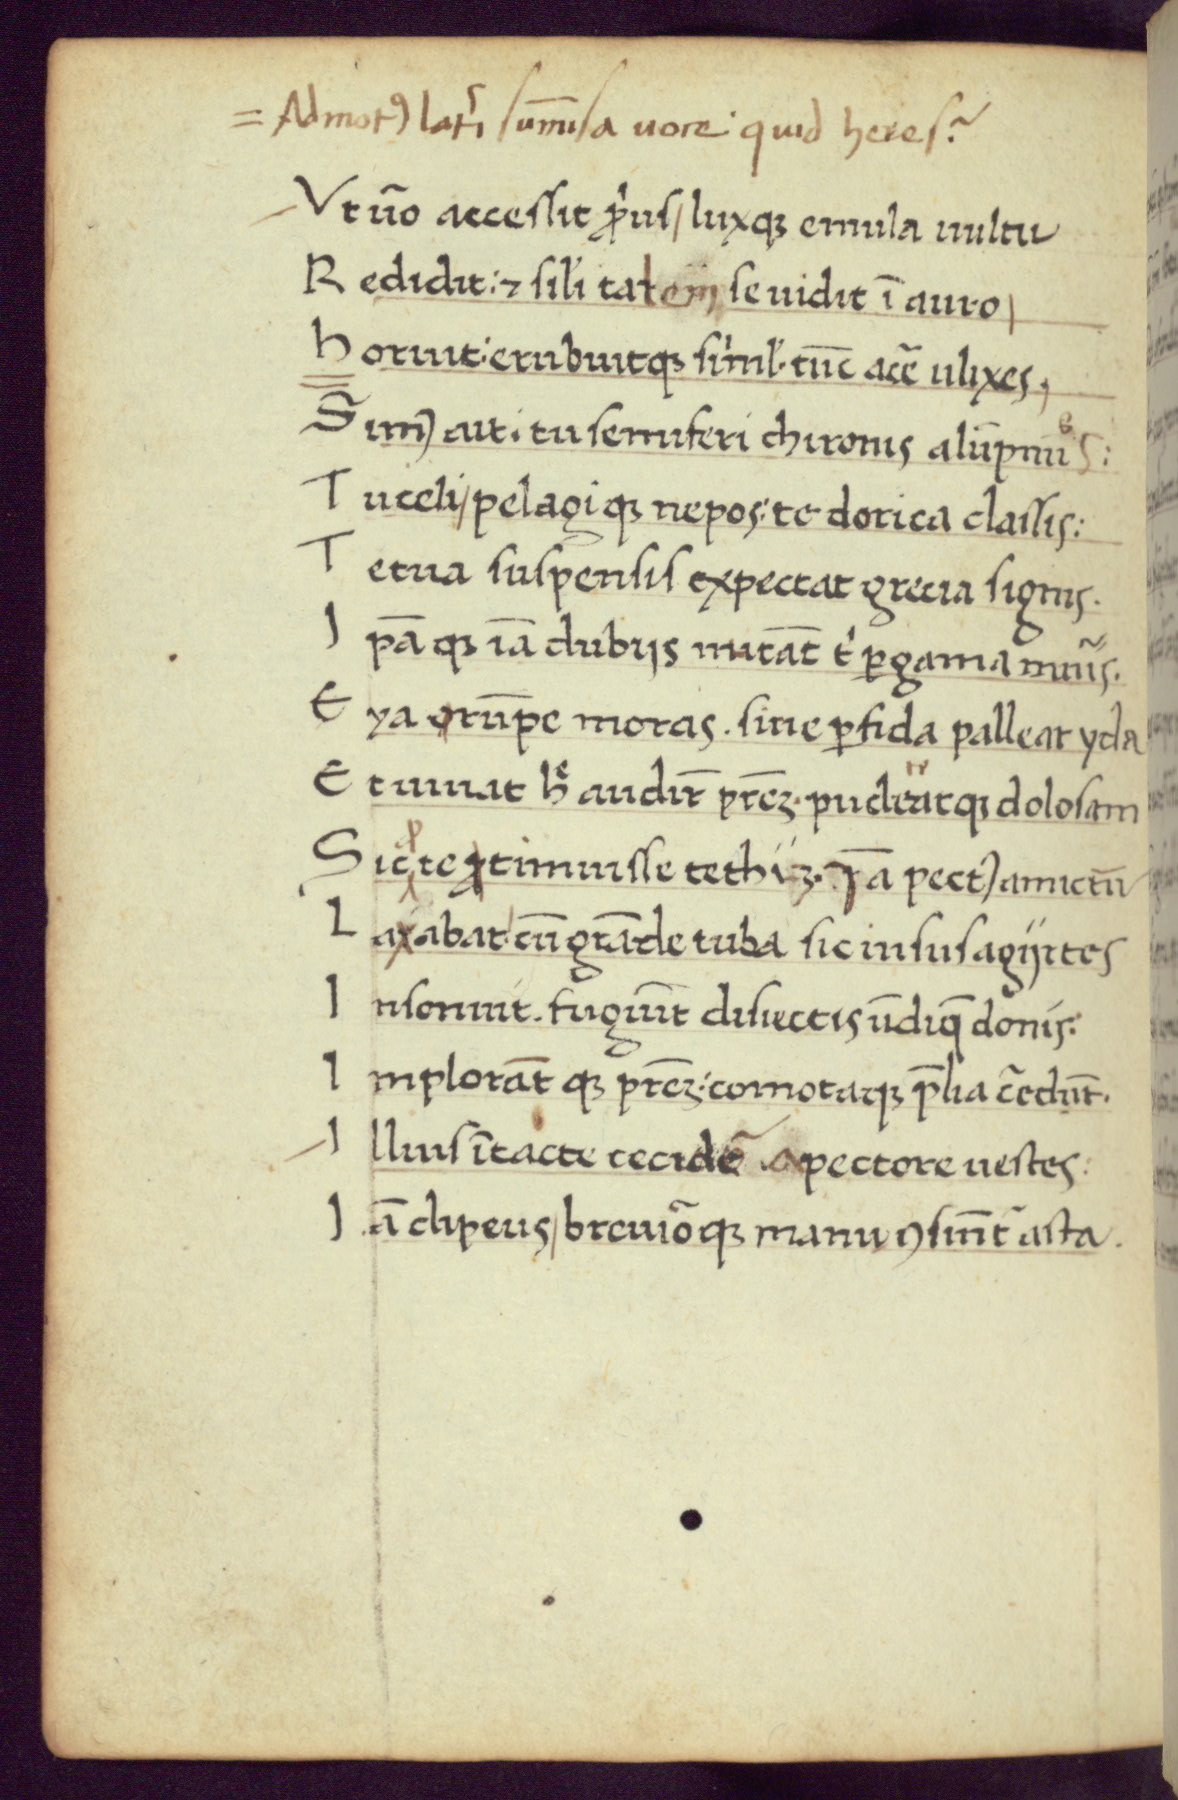 = Admotꝯ lat͛i sūmisa uoce quid heres?
Vt ũo accessit p̾ius / luxqꝫ emula uultu
Redidit: ⁊ sil̾i talem se uidit ī auro
Horuit: erubuitqꝫ simĺ. tūc acẽ ulixes,
S̃imꝯ aut: tu semiferi chironis alūpnus:
Tu celi / pelagiqꝫ nepos: te dorica classis:
Te tua suspensis expectat grecia signis.
Ipāqꝫ iā dubijs nutāt t̾ ꝑgama mũis.
Eya rūpe moras. sine ꝑfida palleat yda
Et iuuat h̃ audir̄ pr̄eꝫ. pudeatqꝫ dolosam
Sic te ꝓtimuisse tethiꝫ. Iā pectꝯ amictū
Laxabat cū grāde tuba sic iusus agijrtes
Insonuit. fugiūt disiectis ūdiqꝫ donis.
Implorāt qꝫ pr̄eꝫ: comotaqꝫ p̄lia c̃edūt.
Illius ītacte cecidẽ a pectore uestes:
Iā clipeus / breuiõqꝫ manu ꝯsumit̃ asta.